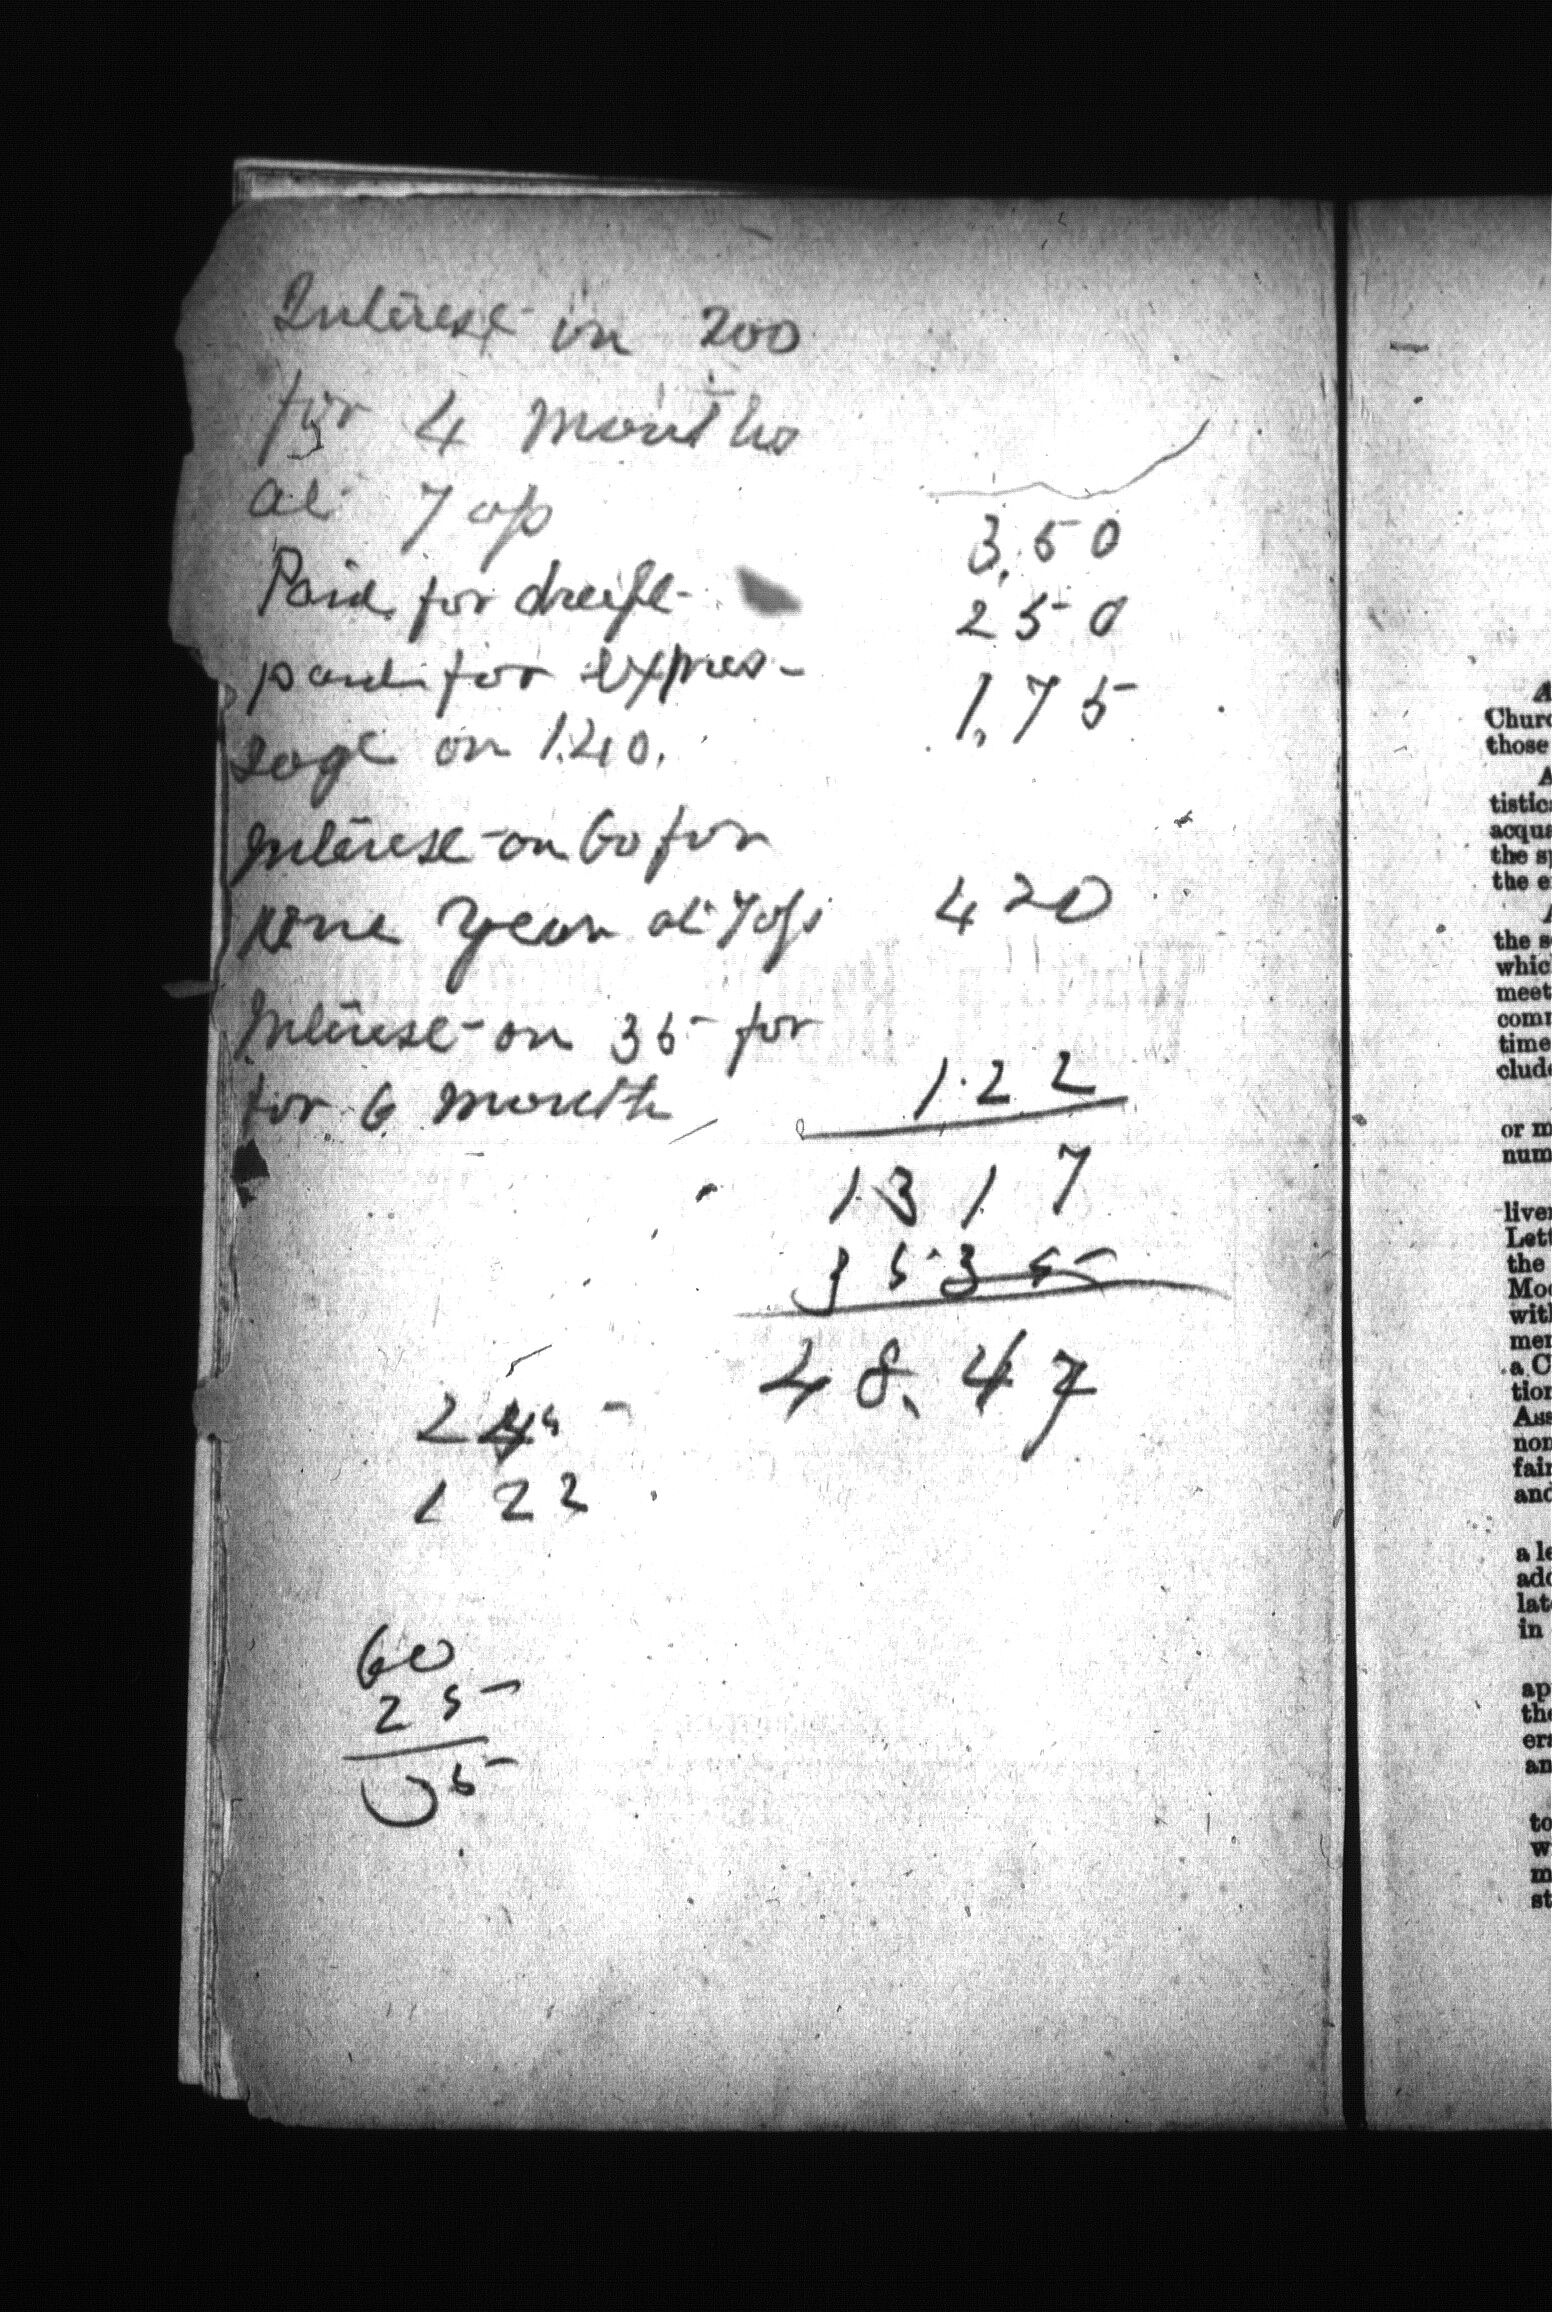 Interest on 200
for 4 months
at 7 o/o 3.50
Paid for draft 2 50
paid for expres- 1.75
sage on 1.40.
Interest on 60 for
one year at 7 o/o 4 20
Interest on 35 for
for 6 month 1.22
13 17
35.35
48.47
24
1 22
60
25
35
A
Churc
those
A
tistic
acqua
the sp
the e
A
the s
whic
meet
comm
time
clude
or m
num
liver
Lett
the
Moc
with
mer
a C
tion
Ass
non
fair
and
a le
add
late
in
ap
the
era
an
to
w
m
st